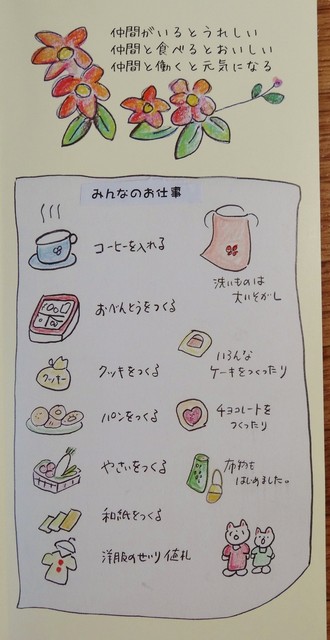 仲間がいるとうれしい
仲間と食べるとおいしい
仲間と働くと元気になる
みんなのお仕事
コーヒーを入れる
洗いものは
大いそがし
おべんとうをつくる
いろんな
ケーキをつくったり
クッキー
クッキをつくる
パンをつくる
チョコレートを
つくったり
やさいをつくる
布物を
はじめました。
和紙をつくる
洋服のせいり値札